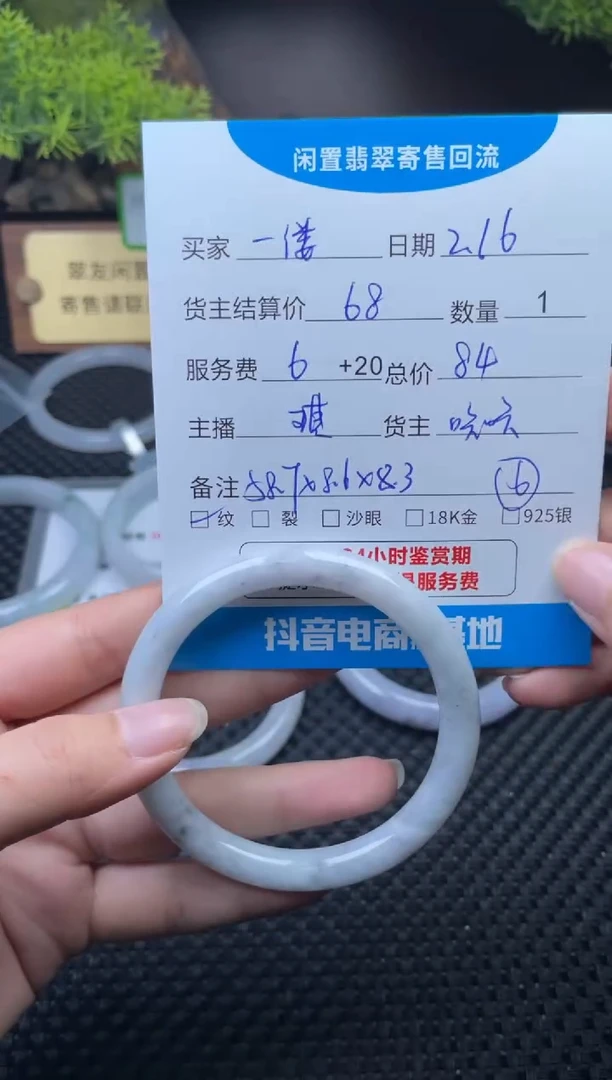 闲置翡翠寄售回流
买家 一偻 日期 2.16
货主结算价 68 数量 1
服务费 6 +20 总价 84
主播 琪 货主
备注 58.7x8.6x8.3 ⑥
纹 裂 沙眼 18K金 925银
4小时鉴赏期
服务费
抖音电商 基地
翠友闲置
寄售请联